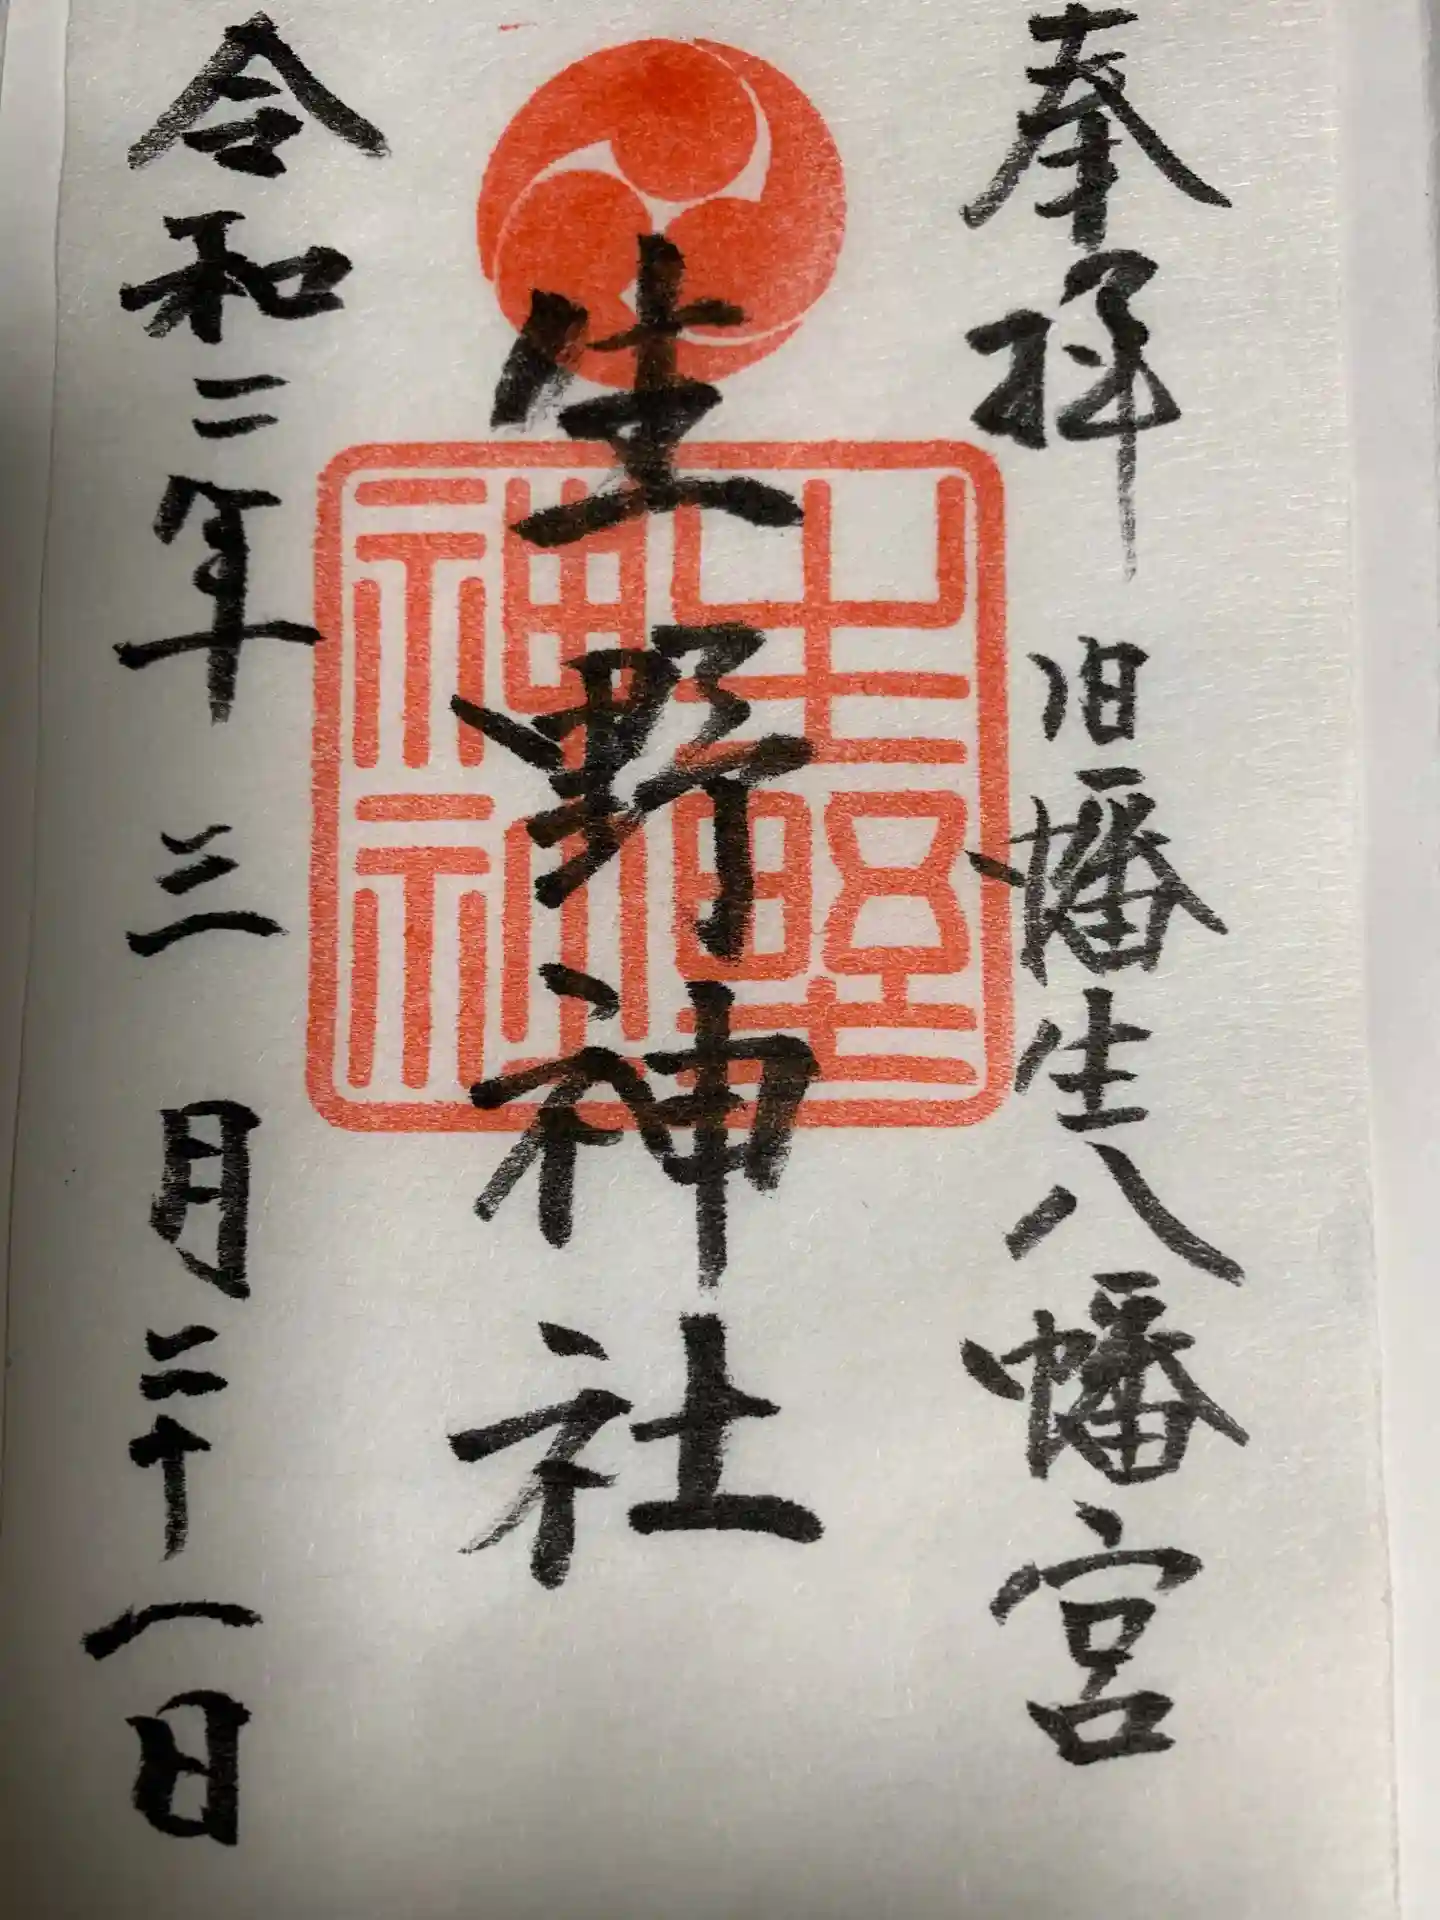 奉拝 旧幡生八幡宮
生野神社
生野神社
令和二年 三 月二十一日